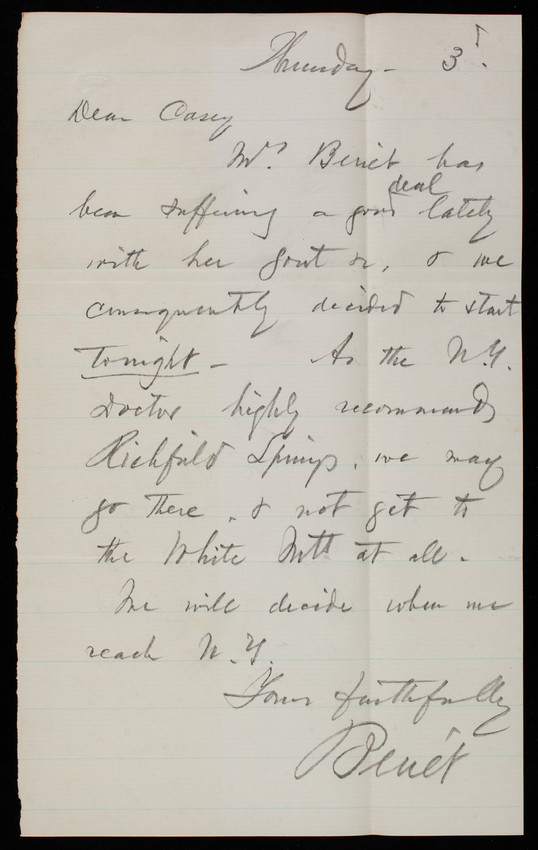 Thursday - 3d.
Dear Casey
Mrs. Benét has
been suffering a good deal lately
with her gout &c, & we
consequently decided to start
tonight - As the N.Y.
Doctor highly recommends
Richfield Springs, we may
go there, & not get to
the White Mts at all.
We will decide when we
reach N.Y.
Yours faithfully
Benét